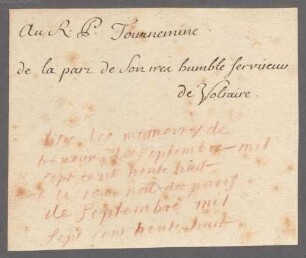 Au R. P. Tournemine
de la part de son tres humble serviteur
de Voltaire.
les memoires de
Septembre mil
sept cent trente huit
de paris
de Septembre mil
sept cent trente huit